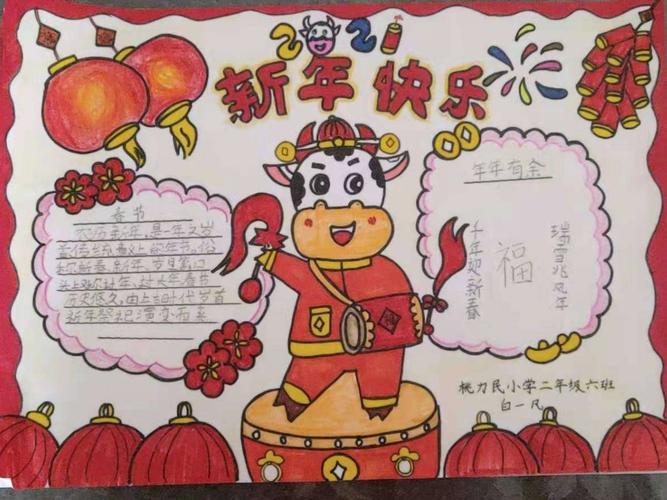 2021
新年快乐
春节
农历新年,是一年之岁
首传统意义上的年节.俗
称新春、新年、岁旦等,口
头上又称过年、过大年.春节
历史悠久,由上古时代岁首
新年祭祀演变而来
年年有余
瑞雪兆丰年
福
千年迎新春
桃力民小学二年级六班
白一凡